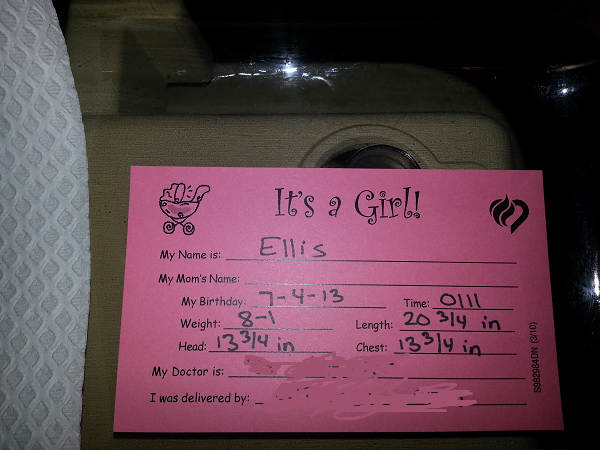 It's a Girl!
My Name is: Ellis
My Mom's Name:
My Birthday: 7-4-13 Time: 0111
Weight: 8-1 Length: 20 3/4 in
Head: 13 3/4 in Chest: 13 3/4 in
My Doctor is:
I was delivered by:
S982984DN (3/10)